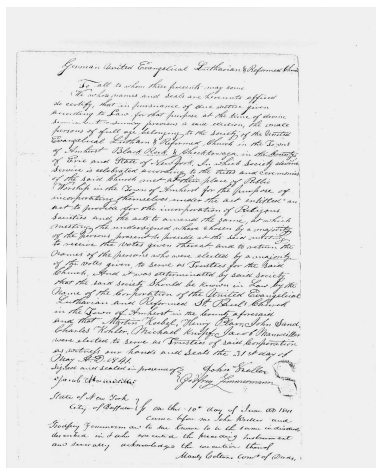 German United Evangelical Lutharian & Reformed Church
To all to whom these presents may come
We whose names and seals are hereunto affixed
do certify, that in pursuance of due notice given
according to Law for that purpose at the time of divine
service to in and election, the male
persons of full age belonging to the Society of the United
Evangelical Lutharan & Reformed Church in the Towns
of Amherst Black Rock & Checktowaga, in the County
of Erie and State of New York, in which Society divine
service is celebrated according to the rites and ceremonies
of the said Church met at their place of Public
Worship in the Town of Amherst for the purpose of
incorporating themselves under the act entitled "an
act to provide for the incorporation of Religious
Societies and the acts to amend the same, at which
meeting the undersigned where chosen by a majority
of the persons present to preside at the said meeting
to receive the votes given thereat and to return the
names of the persons who were elected by a majority
of the votes given to serve as Trustees for the said
Church, And it was determined by said society
that the said society should be known in Law by the
name of the Corporation of the United Evangelical
Lutharian and Reformed St. Pauls Church
in the Town of Amherst in the County aforesaid
and that Martin Henry John Sand,
Charles Kohler, Michael Jacob
were elected to serve as Trustees of said Corporation
as witness our hands and Seals the 31st day of
May A.D. 1841
Signed and sealed in presence of John
Jacob Godfrey Zimmermann
State of New York
City of Buffalo } On this 10th day of June AD 1841
came before me John and
Godfrey Zimmerman to me known to be the same individuals
described in & who executed the preceding Instrument
and severally acknowledged the execution thereof
Comr of Deeds